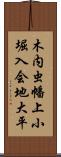 木内虫幡上小
堀入会地大平